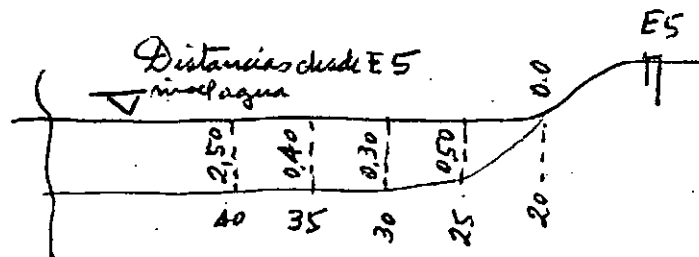 E5
Distancias desde E5
nivel agua
0.0
2,50
0,40
0,30
0,50
40
35
30
25
20